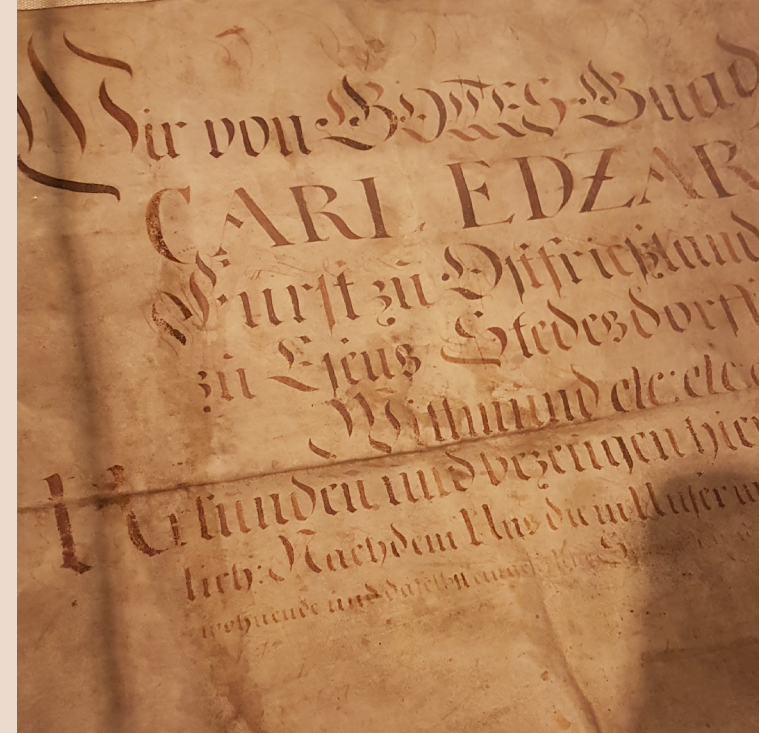 Wir von GOTTES Gnad
CARL EDZAR
Fürst zu Ostfrießland
zu Esens Stedesdorff
Wittmund etc: etc: e
Uhrkunden und bezeugen hier
lich: Nachdem Uns du in Unser
wohnende und daselbst